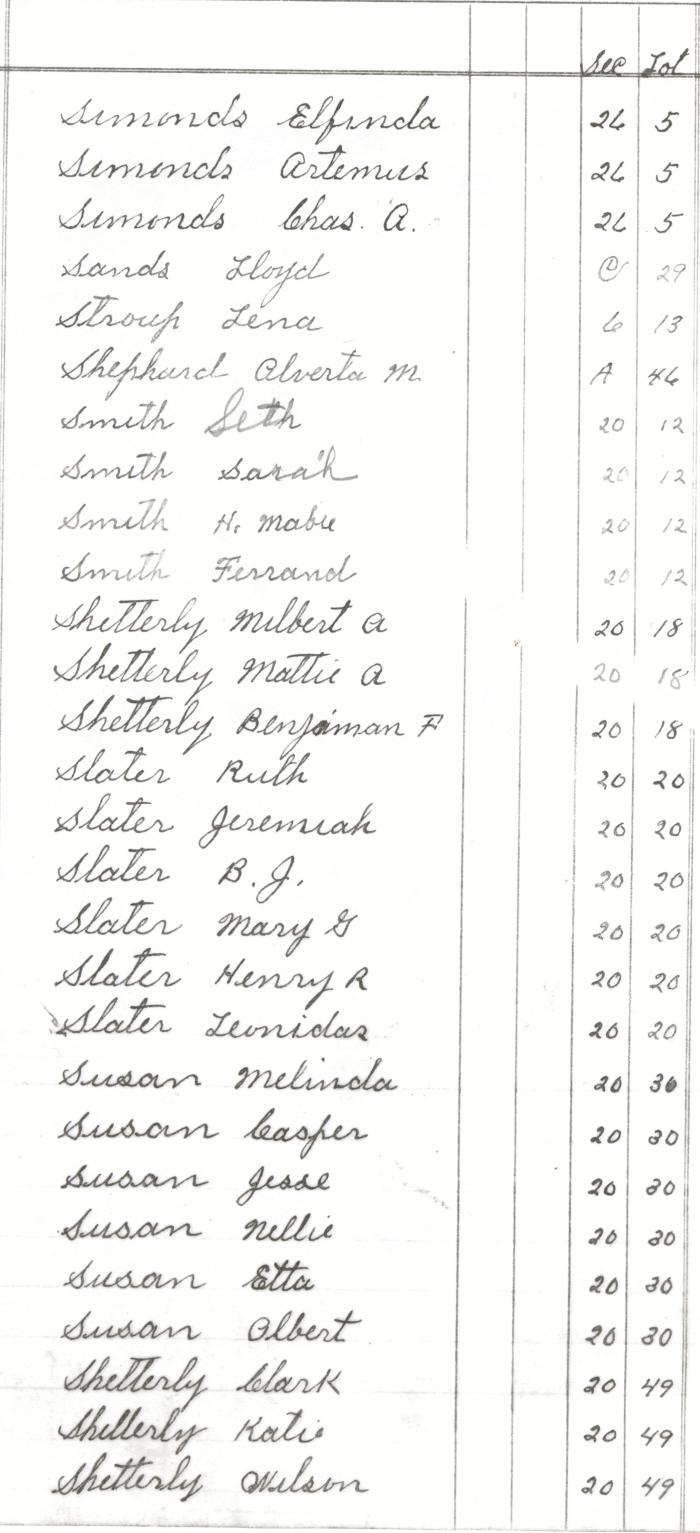 Sec Lot
Simonds Elfinda 26 5
Simonds Artemus 26 5
Simonds Chas. A. 26 5
Sands Lloyd C 29
Stroup Lena 6 13
Shephard Alverta M. A 46
Smith Seth 20 12
Smith Sarah 20 12
Smith H. Mabie 20 12
Smith Ferrand 20 12
Shetterly Milbert A 20 18
Shetterly Mattie A 20 18
Shetterly Benjaman F 20 18
Slater Ruth 20 20
Slater Jeremiah 20 20
Slater B. J. 20 20
Slater Mary G 20 20
Slater Henry R 20 20
Slater Leonidas 20 20
Susan Melinda 20 30
Susan Casper 20 30
Susan Jesse 20 30
Susan Nellie 20 30
Susan Etta 20 30
Susan Albert 20 30
Shetterly Clark 20 49
Shetterly Katie 20 49
Shetterly Wilson 20 49